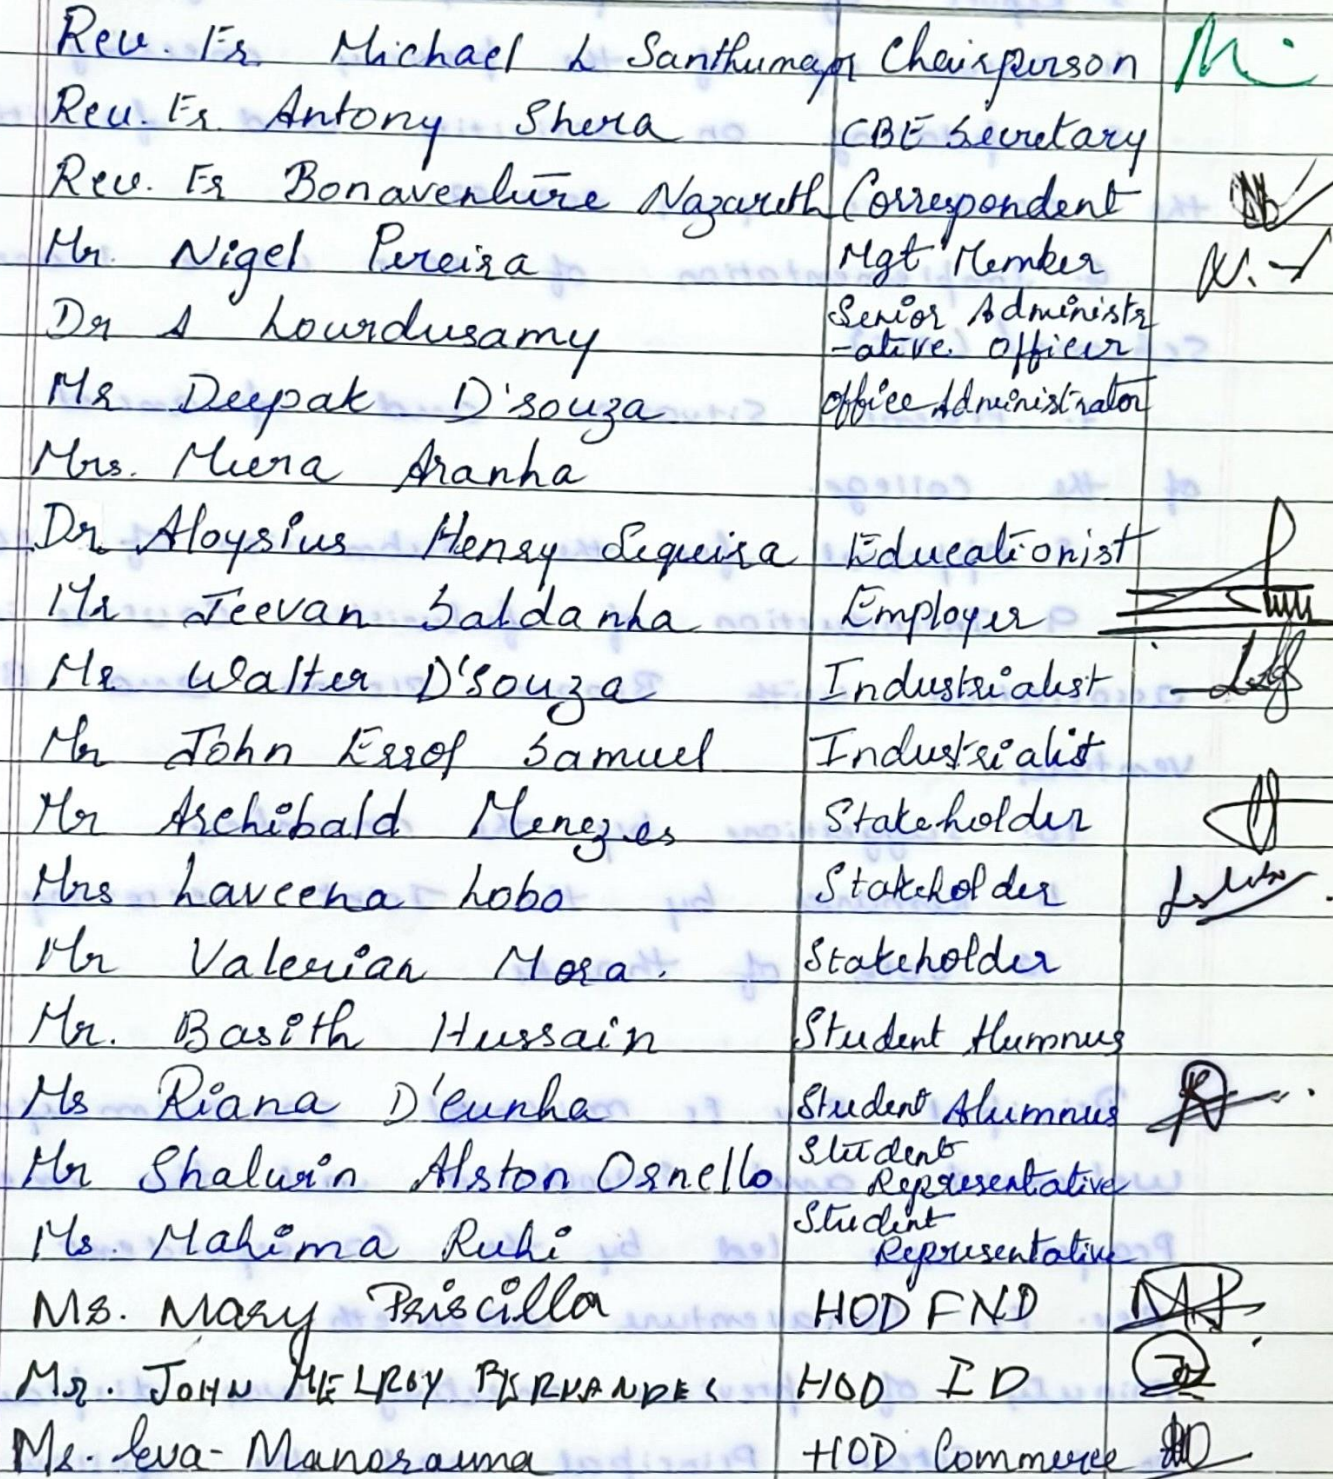 Rev. Fr. Michael L Santhumayor Chairperson
Rev. Fr Antony Shera CBE Secretary
Rev. Fr Bonaventure Nazareth Correspondent
Mr. Nigel Pereira Mgt Member
Dr A Lourdusamy Senior Administr
-ative. Officer
Mr Deepak D'souza Office Administrator
Mrs. Meera Aranha
Dr Aloysius Henry Sequeira Educationist
Mr Jeevan Saldanha Employer
Mr Walter D'Souza Industrialist
Mr John Errol Samuel Industrialist
Mr Archibald Menezes Stakeholder
Mrs Laveena Lobo Stakeholder
Mr Valerian Mora. Stakeholder
Mr. Basith Hussain Student Alumnus
Ms Riana D'cunha Student Alumnus
Mr Shalwin Alston Ornello Student
Representative
Ms. Mahima Ruhi Student
Representative
Ms. Mary Priscilla HOD FND
Mr. JOHN MELROY FERNANDES HOD ID
Ms. Eva Manorama HOD Commerce